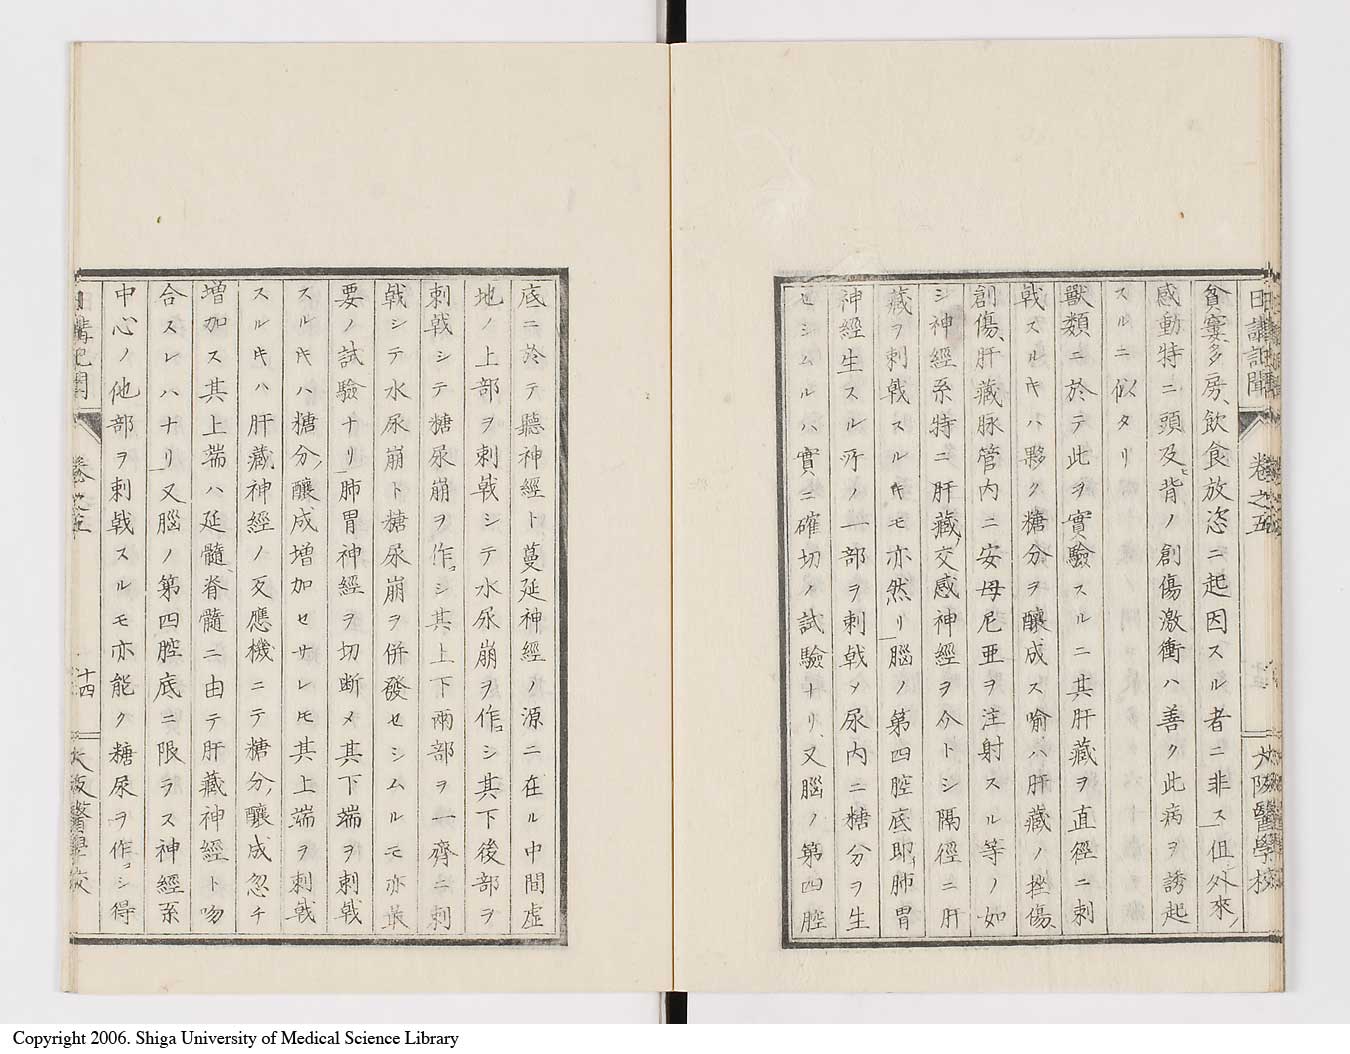 日講記聞 卷之五 大阪醫學校
貧寠多房、飮食放恣ニ起因スル者ニ非ス但外來ノ
感動特ニ頭及ヒ背ノ創傷激衝ハ善ク此病ヲ誘起
スルニ似タリ
獸類ニ於テ此ヲ實驗スルニ其肝藏ヲ直徑ニ刺
戟スルキハ夥ク糖分ヲ釀成ス喩ハ肝藏ノ挫傷、
創傷、肝藏脉管内ニ安母尼亜ヲ注射スル等ノ如
シ神經系特ニ肝藏交感神經ヲ介トシ隔徑ニ肝
藏ヲ刺戟スルキモ亦然リ腦ノ第四腔底即チ肺胃
神經生スル所ノ一部ヲ刺戟メ尿内ニ糖分ヲ生
セシムルハ實ニ確切ノ試驗ナリ、又腦ノ第四腔
底ニ於テ聽神經ト蔓延神經ノ源ニ在ル中間虚
地ノ上部ヲ刺戟シテ水尿崩ヲ作シ其下後部ヲ
刺戟シテ糖尿崩ヲ作シ其上下兩部ヲ一齊ニ刺
戟シテ水尿崩ト糖尿崩ヲ併發セシムルモ亦最
要ノ試驗ナリ肺胃神經ヲ切断メ其下端ヲ刺戟
スルキハ糖分ノ釀成増加セサレ𪜈其上端ヲ刺戟
スルキハ肝藏神經ノ反應機ニテ糖分ノ釀成忽チ
増加ス其上端ハ延髓、脊髓ニ由テ肝藏神經ト吻
合スレハナリ又腦ノ第四腔底ニ限ラス神經系
中心ノ他部ヲ刺戟スルモ亦能ク糖尿ヲ作シ得
日講記聞 卷之五 十四 大阪醫學校
Copyright 2006. Shiga University of Medical Science Library